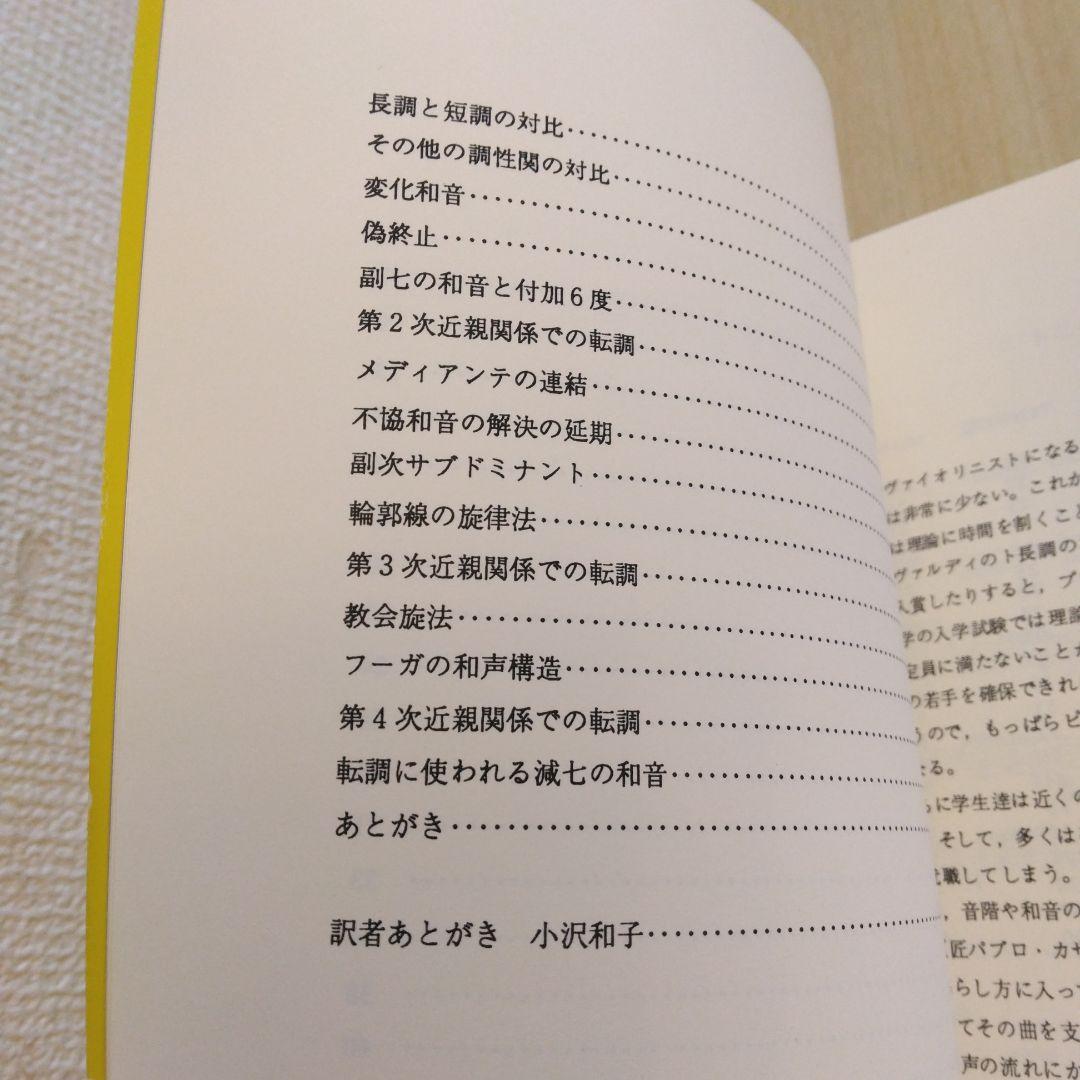 長調と短調の対比
その他の調性関の対比
変化和音
偽終止
副七の和音と付加6度
第2次近親関係での転調
メディアンテの連結
不協和音の解決の延期
副次サブドミナント
輪郭線の旋律法
第3次近親関係での転調
教会旋法
フーガの和声構造
第4次近親関係での転調
転調に使われる減七の和音
あとがき
訳者あとがき 小沢和子
ヴァイオリニストになる
は非常に少ない。これか
は理論に時間を割くこと
ヴァルディのト長調の
入賞したりすると，プ
学の入学試験では理論
定員に満たないことか
の若手を確保できれ
うので，もっぱらピ
る。
に学生達は近くの
そして，多くは
職してしまう。
，音階や和音の
匠パブロ・カザ
らし方に入って
てその曲を支
声の流れにか